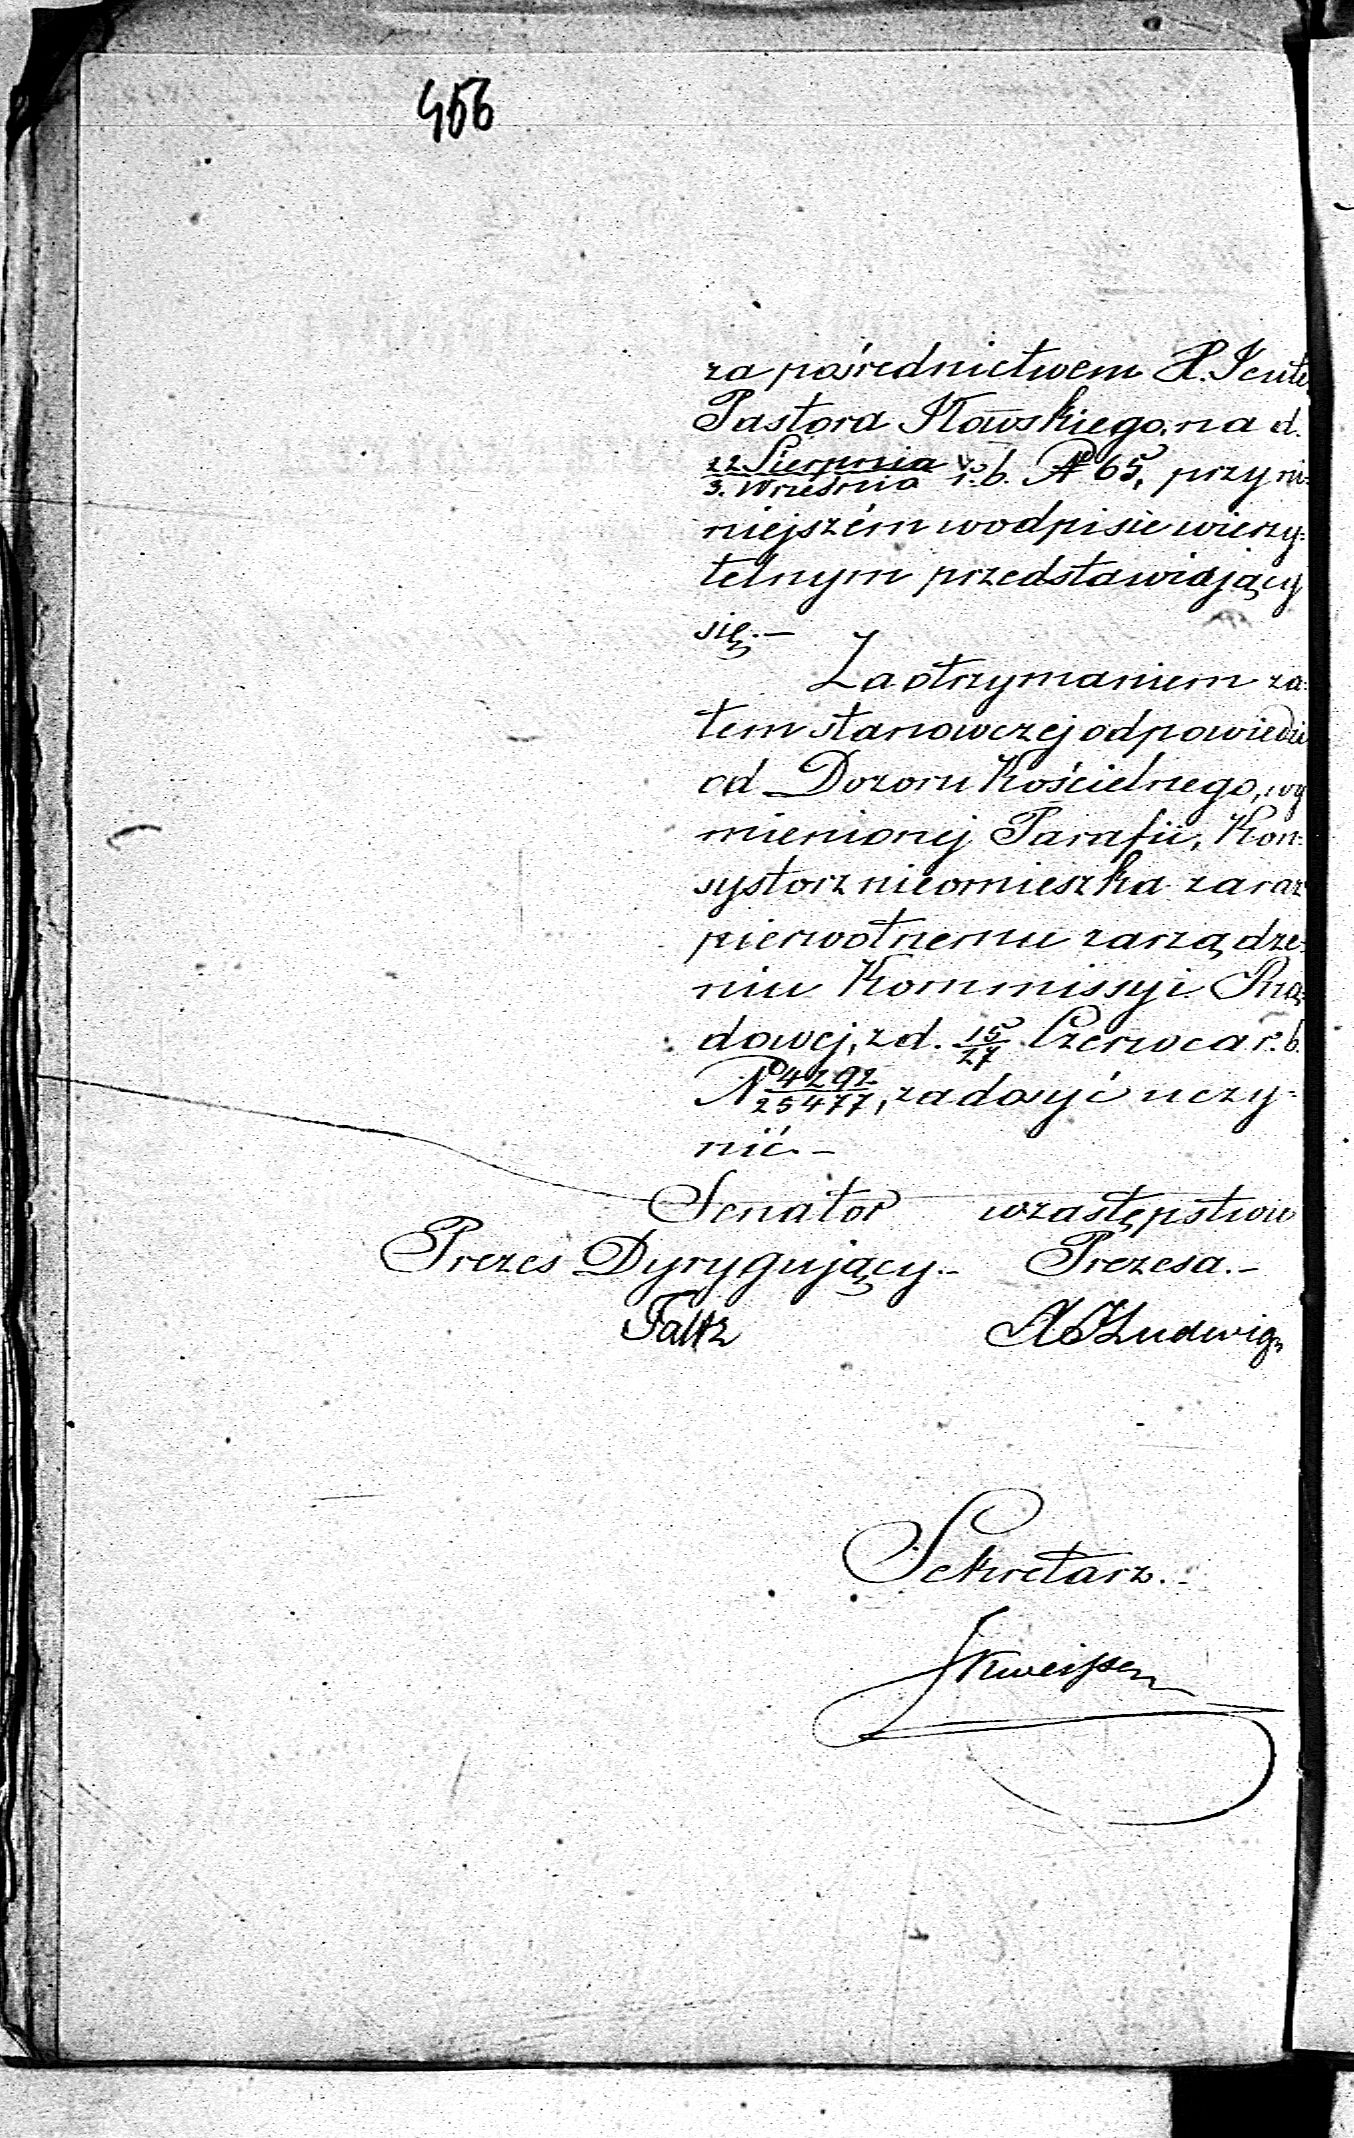 456
za pośrednictwem X. Jenti
Pastora Kłowskiego, na d.
22 Sierpnia
3. Września r. b. № 65, przy ni-
niejszém w odpisie wierzy-
telnym przedstawiający
się.—
Za otrzymaniem za-
tem stanowczej odpowiedzi
od Dozoru Kościelnego, wy
mienionej Parafii, Kon-
systorz nieomieszka zaraz
pierwotnemu zarządze-
niu Kommissyi Rzą-
dowej, z d. 15/27 Czerwca r. b.
№ 4292/25477, zadosyć uczy-
nić.—
Senator w zastępstwie
Prezes Dyrygujący.— Prezesa.—
Faltz Ludwig
Sekretarz.